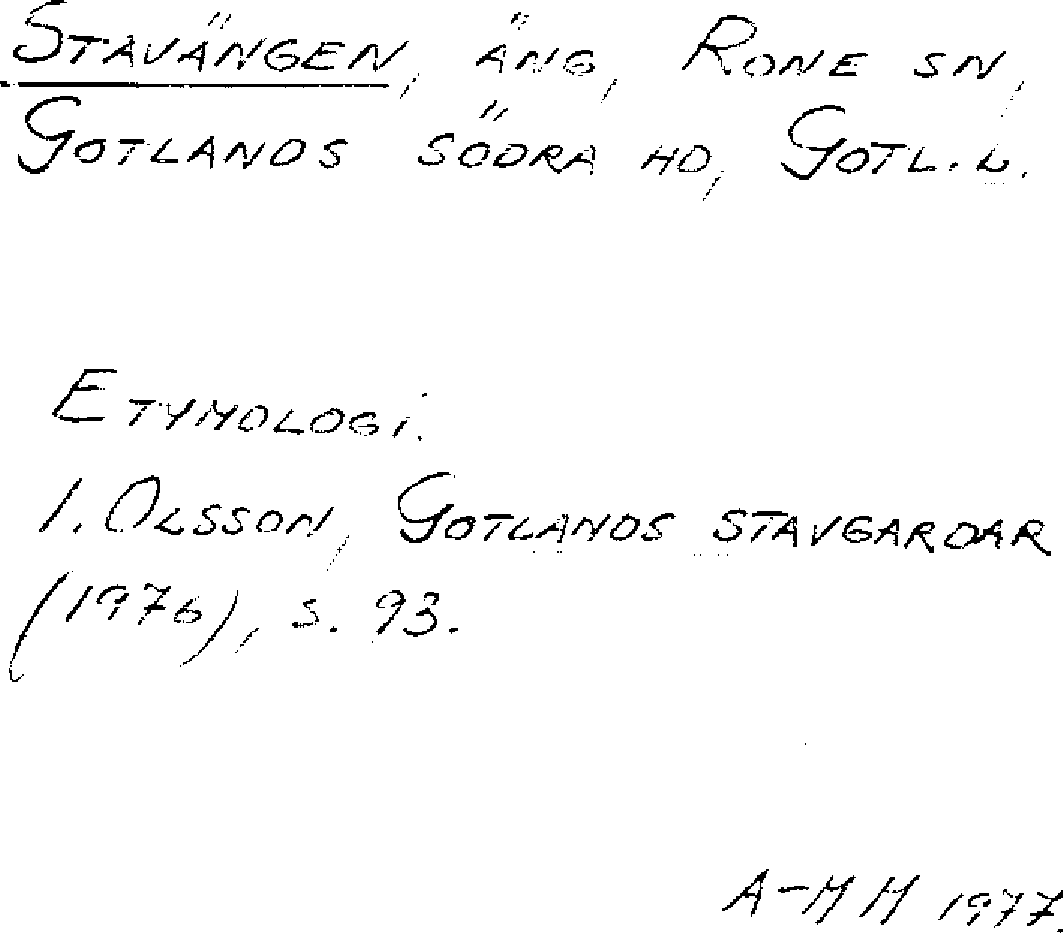 STAVÄNGEN, ÄNG, RONE SN,
GOTLANDS SÖDRA HD, GOTL. L.
ETYMOLOGI.
I. OLSSON, GOTLANDS STAVGARDAR
(1976), S. 93.
A-MH 1977.